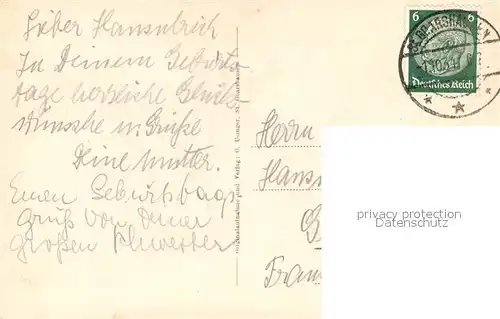 Lieber Hansulrich
Zu Deinem Geburts-
tage herzliche Glück-
wünsche u. Grüße
Deine Mutter.
Einen Geburtstags
gruß von Deiner
großen Schwester
Herrn
Hans
Fran
6 6
Deutsches Reich
privacy protection
Datenschutz